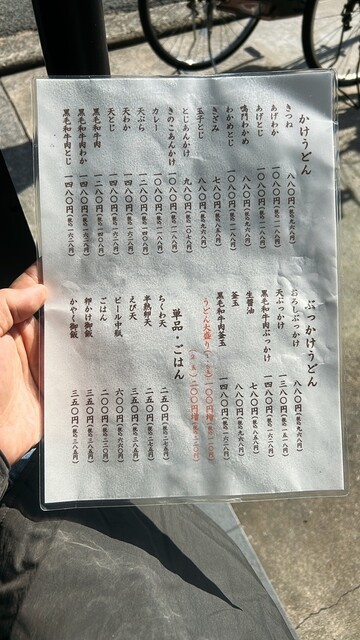 かけうどん
きつね 八八〇円(税込九六八円)
あげわか 一〇八〇円(税込一一八八円)
あげとじ 一〇八〇円(税込一一八八円)
鳴門わかめ 一〇八〇円(税込一一八八円)
わかめとじ 一〇八〇円(税込一一八八円)
きざみ 七八〇円(税込八五八円)
玉子とじ 八八〇円(税込九六八円)
とじあんかけ 九八〇円(税込一〇七八円)
きのこあんかけ 一〇八〇円(税込一一八八円)
カレー 一〇八〇円(税込一一八八円)
天ぷら 一二八〇円(税込一四〇八円)
天わか 一四八〇円(税込一六二八円)
天とじ 一四八〇円(税込一六二八円)
黒毛和牛肉 一二八〇円(税込一四〇八円)
黒毛和牛肉わか 一四八〇円(税込一六二八円)
黒毛和牛肉とじ 一四八〇円(税込一六二八円)
ぶっかけうどん
おろしぶっかけ 八八〇円(税込九六八円)
天ぶっかけ 一三八〇円(税込一五一八円)
黒毛和牛肉ぶっかけ 一四八〇円(税込一六二八円)
生醤油 七八〇円(税込八五八円)
釜玉 八八〇円(税込九六八円)
黒毛和牛肉釜玉 一四八〇円(税込一六二八円)
うどん大盛り 一〇〇円(税込一一〇円)
二〇〇円(税込二二〇円)
単品・ごはん
ちくわ天 二五〇円(税込二七五円)
半熟卵天 二五〇円(税込二七五円)
えび天 三五〇円(税込三八五円)
ビール中瓶 六〇〇円(税込六六〇円)
ごはん 二〇〇円(税込二二〇円)
卵かけ御飯 三五〇円(税込三八五円)
かやく御飯 三五〇円(税込三八五円)